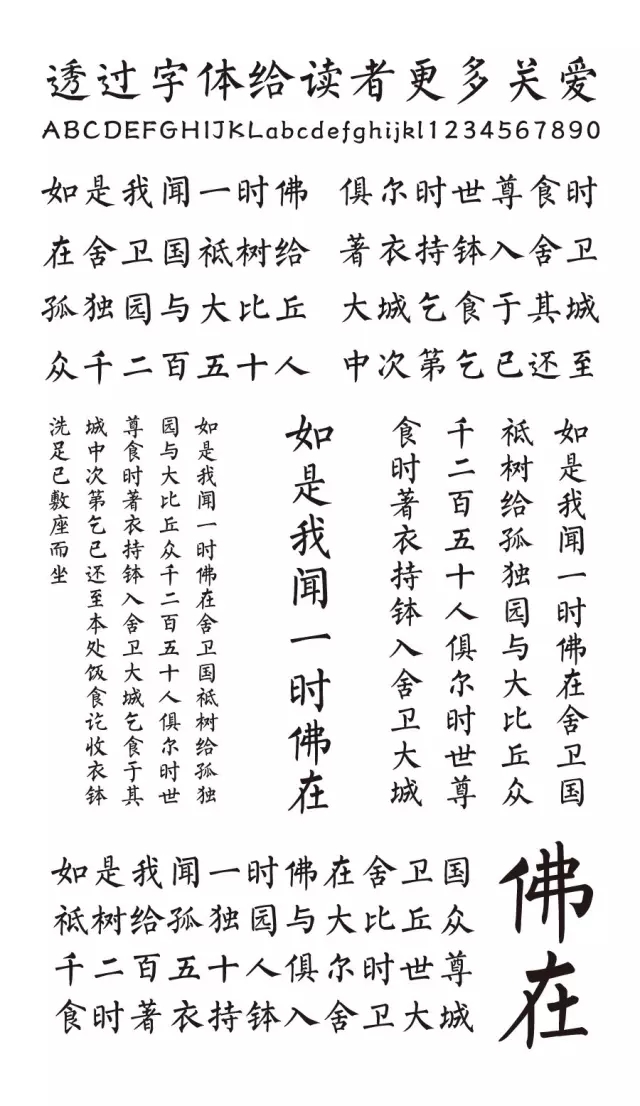 透过字体给读者更多关爱
ABCDEFGHIJKLabcdefghijkl1234567890
如是我闻一时佛
在舍卫国祇树给
孤独园与大比丘
众千二百五十人
俱尔时世尊食时
著衣持钵入舍卫
大城乞食于其城
中次第乞已还至
如是我闻一时佛在舍卫国
祇树给孤独园与大比丘众
千二百五十人俱尔时世尊
食时著衣持钵入舍卫大城
如是我闻一时佛在
如是我闻一时佛在舍卫国祇树给孤独
园与大比丘众千二百五十人俱尔时世
尊食时著衣持钵入舍卫大城乞食于其
城中次第乞已还至本处饭食讫收衣钵
洗足已敷座而坐
如是我闻一时佛在舍卫国
祇树给孤独园与大比丘众
千二百五十人俱尔时世尊
食时著衣持钵入舍卫大城
佛在